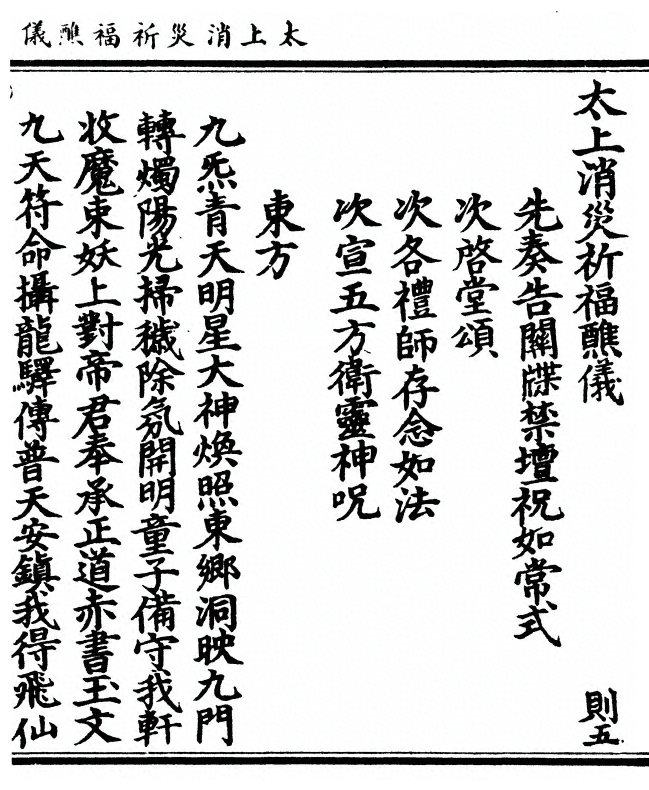 太上消災祈福醮儀
太上消災祈福醮儀　則五
先奏告關牒禁壇祝如常式
次啓堂頌
次各禮師存念如法
次宣五方衛靈神呪
東方
九炁青天明星大神煥照東鄉洞映九門
轉燭陽光掃穢除氛開明童子備守我軒
收魔束妖上對帝君奉承正道赤書玉文
九天符命攝龍驛傳普天安鎮我得飛仙